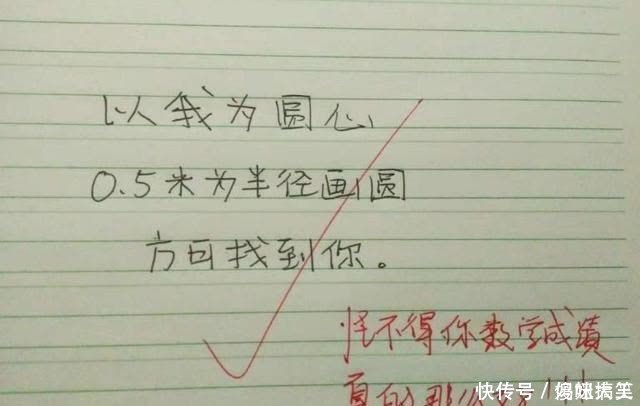 以我为圆心
0.5米为半径画圆
方可找到你。
怪不得你数学成绩
真的那么
快传号／媳妇搞笑